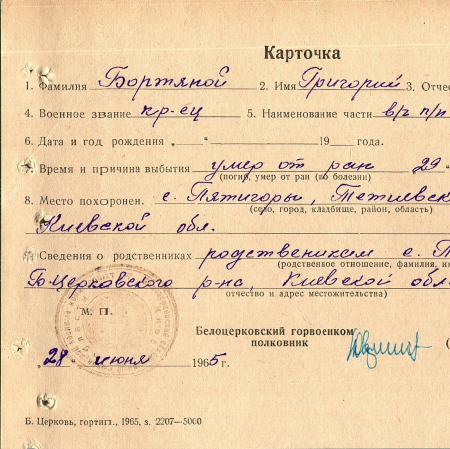 Карточка
1. Фамилия Бортяной 2. Имя Григорий 3. Отчес
4. Военное звание кр-ец 5. Наименование части в/ч п/п
6. Дата и год рождения „ “ 19 года.
7. Время и причина выбытия умер от ран 29
(погиб, умер от ран (по болезни)
8. Место похоронен. с. Пятигоры, Тетиевск
(село, город, кладбище, район, область)
Киевской обл.
Сведения о родственниках родственикам с. П
(родственное отношение, фамилия, и
Б-Церковского р-на, Киевской обл.
отчество и адрес местожительства)
М. П.
Белоцерковский горвоенком
полковник (
„28“ июня 1965г.
Б. Церковь, гортип., 1965, з. 2207—5000